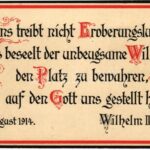 uns treibt nicht Eroberungslu
s beseelt der unbeugsame Wil
den Platz zu bewahren,
auf den Gott uns gestellt h
gust 1914. Wilhelm II